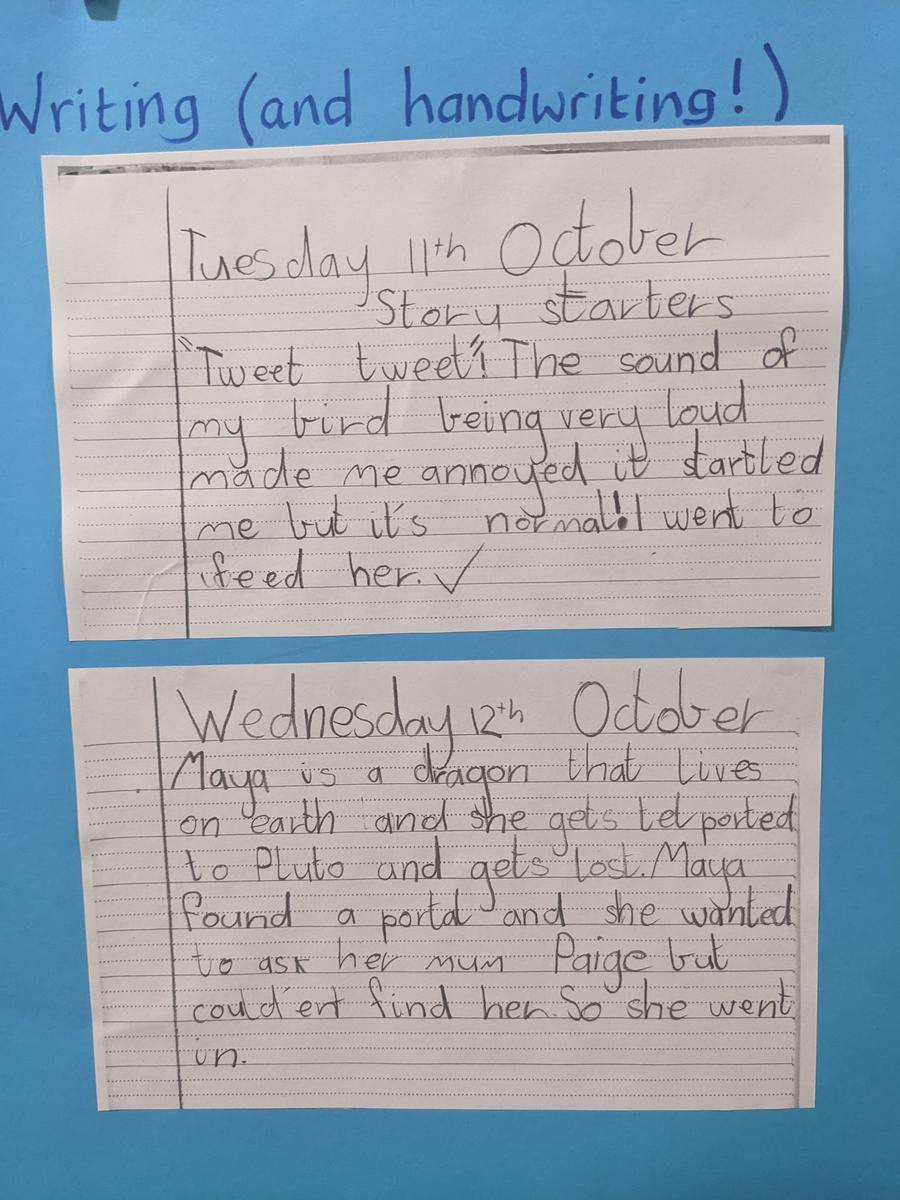 Writing (and handwriting!)
Tuesday 11th October
Story starters
"Tweet tweet"! The sound of
my bird being very loud
made me annoyed it startled
me but it's normal! I went to
feed her. ✓
Wednesday 12th October
Maya is a dragon that lives
on earth and she gets telported
to Pluto and gets lost. Maya
found a portal and she wanted
to ask her mum Paige but
could'ent find her. So she went
in.